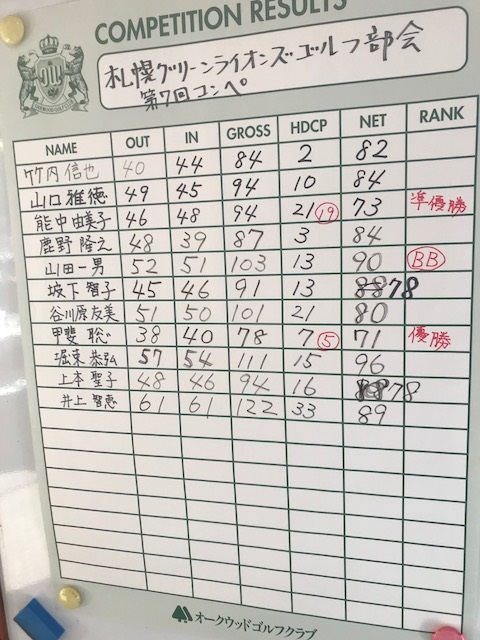 COMPETITION RESULTS
札幌グリーンライオンズゴルフ部会
第7回コンペ
NAME OUT IN GROSS HDCP NET RANK
竹内信也 40 44 84 2 82
山口雅徳 49 45 94 10 84
能中由美子 46 48 94 21 19 73 準優勝
鹿野隆之 48 39 87 3 84
山田一男 52 51 103 13 90 BB
坂下智子 45 46 91 13 88 78
谷川原友美 51 50 101 21 80
甲斐聡 38 40 78 7 5 71 優勝
堀束恭弘 57 54 111 15 96
上本聖子 48 46 94 16 78
井上智恵 61 61 122 33 89
オークウッドゴルフクラブ